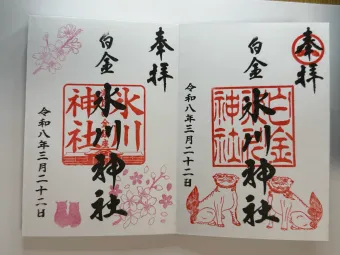 奉拝
白金
氷川神社
氷川
神社
令和八年三月二十二日
奉拝
白金
氷川神社
白金
氷川
神社
令和八年三月二十二日